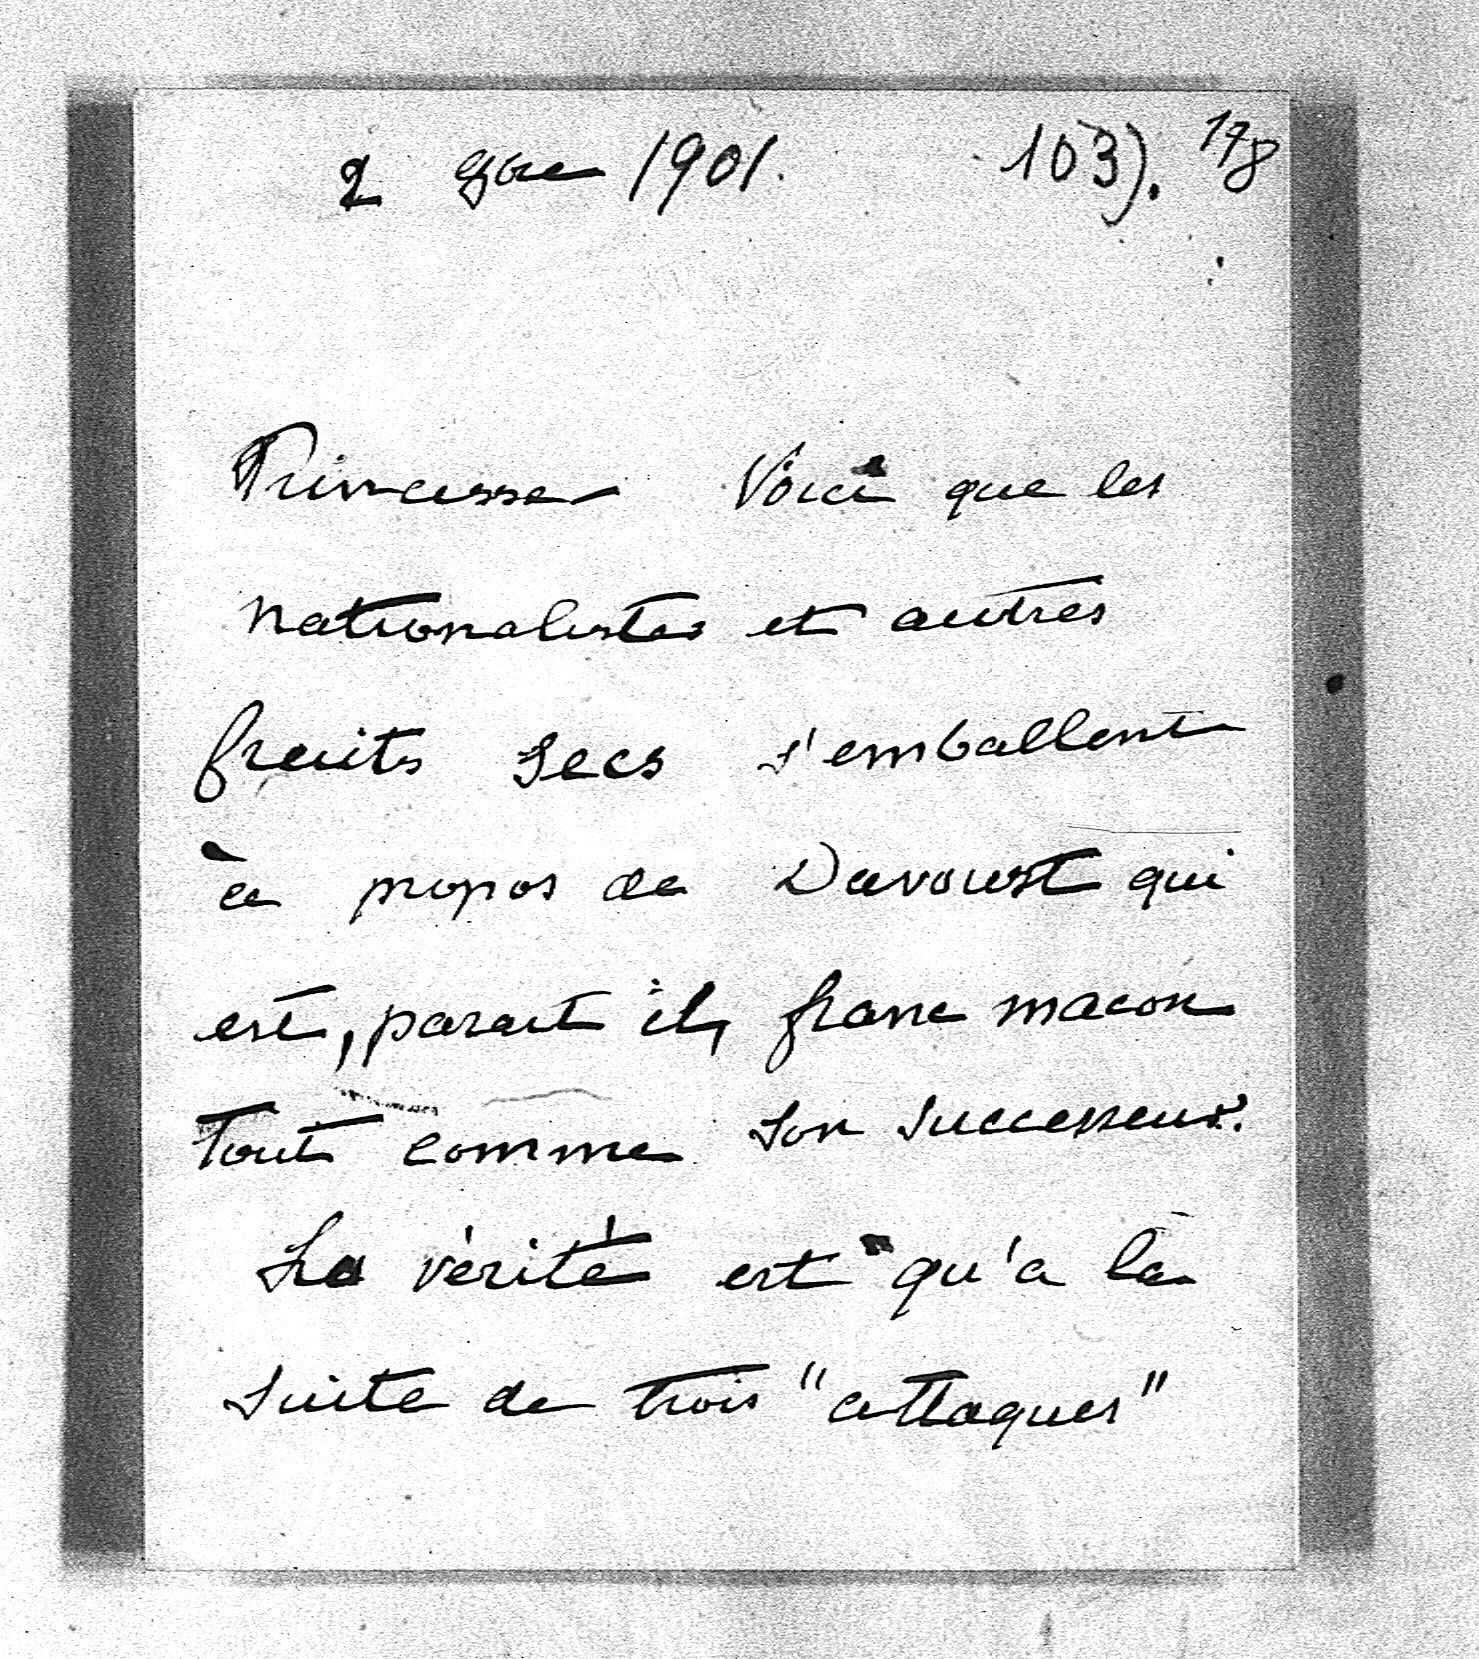 2 9bre 1901. 103). 178
Princesse Voici que les
nationalistes et autres
fruits secs s'emballent
à propos de Davoust qui
est, parait il, franc macon
tout comme son successeur.
La vérité est qu'a la
suite de trois "attaques"